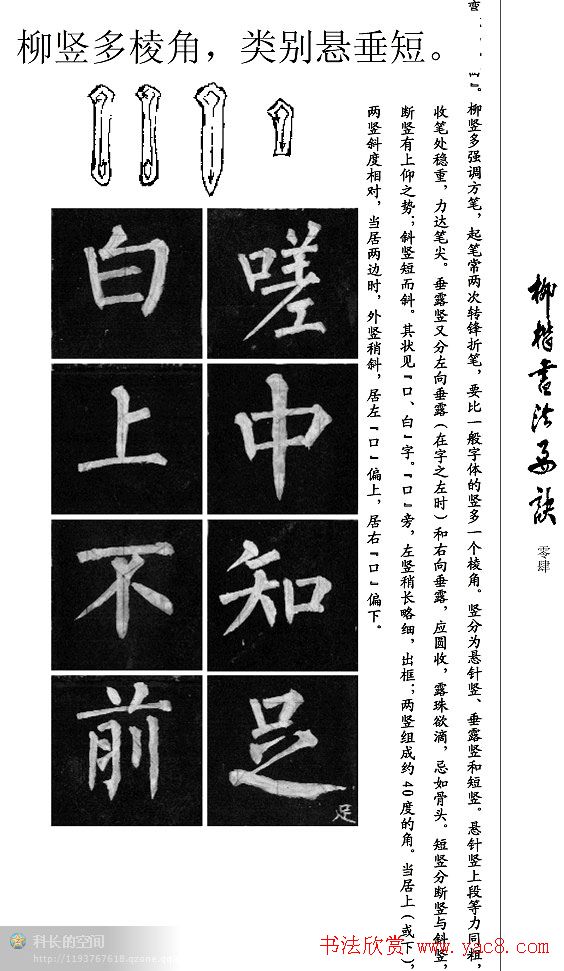 柳竖多棱角，类别悬垂短。
柳竖多强调方笔，起笔常两次转锋折笔，要比一般字体的竖多一个棱角。竖分为悬针竖、垂露竖和短竖。悬针竖上段等力同粗，
收笔处稳重，力达笔尖。垂露竖又分左向垂露（在字之左时）和右向垂露，应圆收，露珠欲滴，忌如骨头。短竖分断竖与斜竖，
断竖有上仰之势；斜竖短而斜。其状见『口、白』字。『口』旁，左竖稍长略细，出框；两竖组成约40度的角。当居上（或下），
两竖斜度相对，当居两边时，外竖稍斜，居左『口』偏上，居右『口』偏下。
嗟 中 知 足
白 上 不 前
足
柳楷书法要诀
零肆
科长的空间
http://1193767618.qzone.qq
书法欣赏 www.yac8.com